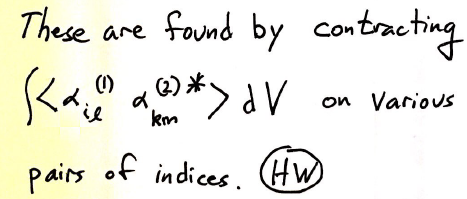 These are found by contracting
∫<α_{il}^{(1)} α_{km}^{(2)*}> dV on various
pairs of indices. HW